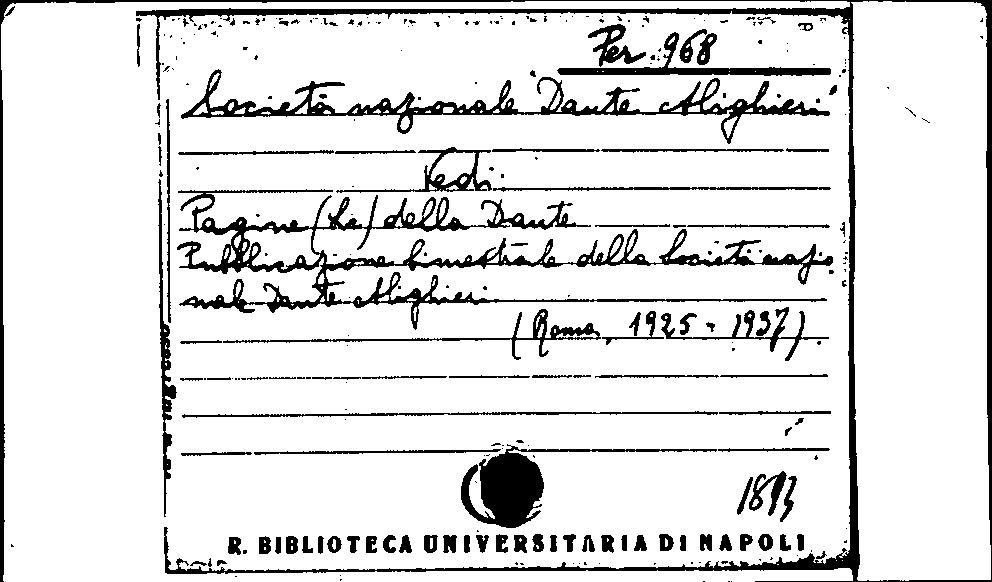 Per. 968
Società nazionale Dante Alighieri
Vedi:
Pagine (Le) della Dante
Pubblicazione bimestrale della Società nazio
nale Dante Alighieri.
(Roma, 1925 - 1937).
R. BIBLIOTECA UNIVERSITARIA DI NAPOLI